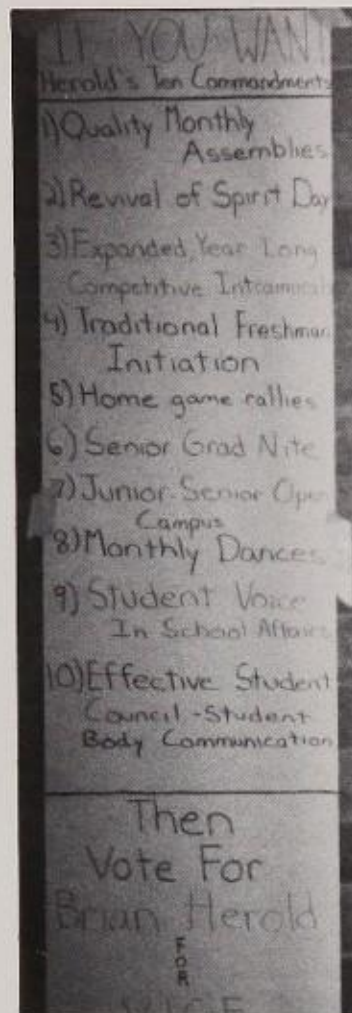 IF YOU WANT
Herold's Ten Commandments
1) Quality Monthly
Assemblies
2) Revival of Spirit Day
3) Expanded, Year Long
Competitive Intramurals
4) Traditional Freshman
Initiation
5) Home game rallies
6) Senior Grad Nite
7) Junior-Senior Open
Campus
8) Monthly Dances
9) Student Voice
In School Affairs
10) Effective Student
Council-Student
Body Communication
Then
Vote For
Brian Herold
FOR
VICE